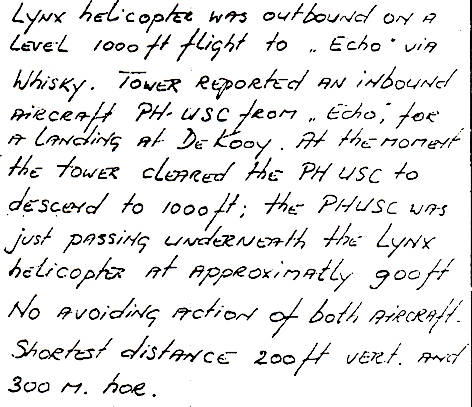 Lynx helicopter was outbound on a
level 1000 ft flight to „Echo" via
Whisky. Tower reported an inbound
aircraft PH-USC from „Echo", for
a landing at De Kooy. At the moment
the tower cleared the PH USC to
descend to 1000 ft; the PHUSC was
just passing underneath the Lynx
helicopter at approximatly 900 ft
No avoiding action of both aircraft.
Shortest distance 200 ft vert. and
300 m. hor.